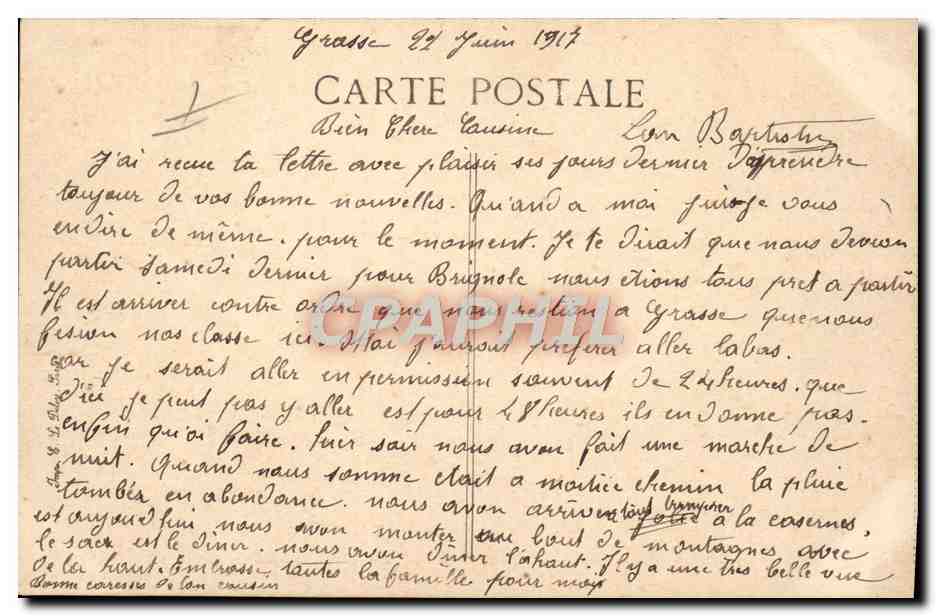 Grasse 22 Juin 1917
CARTE POSTALE
Bien Chere Cousine Baptistin
J'ai recue ta lettre avec plaisir ses jours dernier d'aprendre
toujour de vos bonne nouvelles. Qu'and a moi puis-je vous
endire de même. pour le moment. Je te dirait que nous devion
partir Samedi dernier pour Brignole nous etions tous pret a partir
Il est arriver contre ordre que nous restion a Grasse que nous
fesion nos classe ici. Moi j'aurait préférer aller labas.
car je serait aller en permission souvent de 24 heures. que
d'ici je peut pas y aller est pour 48 heures ils en donne pas.
enfin qu'oi faire. hier soir nous avon fait une marche de
nuit. Quand nous somme etait a moitiée chemin la pluie
tombér en abondance. nous avon arriver tous tremper a la casernes
est aujourd'hui nous avon monter au bout de montagnes avec
le sac est le diner. nous avon diner l'ahaut. Il y a une très belle vue
de la haut. Embrasse toutes la famille pour moi
Bonne caresses de ton cousin
CPAPHIL